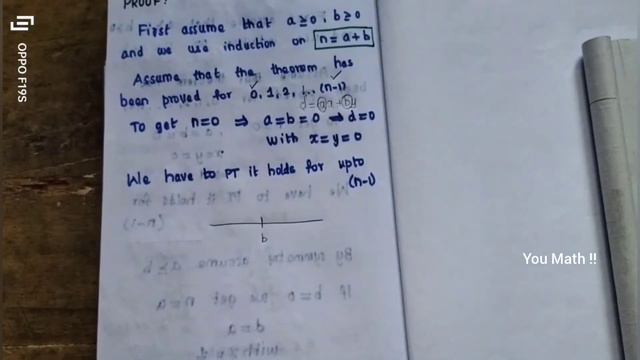 PROOF:
First assume that a ≥ 0, b ≥ 0
and we use induction on n = a + b
Assume that the theorem has
been proved for 0, 1, 2, ... (n-1)
d = ax + by
To get n=0 ⇒ a=b=0 ⇒ d=0
with x=y=0
We have to PT it holds for upto
(n-1)
b
You Math !!
OPPO F19S